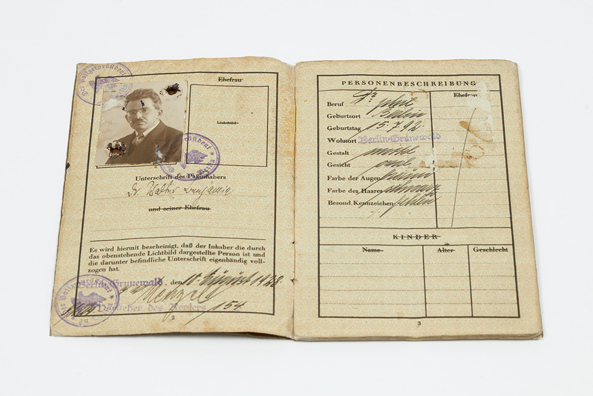 Ehefrau
Lichtbild
Unterschrift des Paßinhabers
Dr. Walter Benjamin
und seiner Ehefrau
Es wird hiermit bescheinigt, daß der Inhaber die durch
das obenstehende Lichtbild dargestellte Person ist und
die darunter befindliche Unterschrift eigenhändig voll-
zogen hat.
Berlin-Grunewald, den 10 August 1928
Vorsteher des
154
3
PERSONENBESCHREIBUNG
Ehefrau
Beruf Dr. phil
Geburtsort Berlin
Geburtstag 15.7.92
Wohnort Berlin-Grunewald
Gestalt mittel
Gesicht oval
Farbe der Augen braun
Farbe des Haares schwarz
Besond. Kennzeichen fehlen
KINDER
Name Alter Geschlecht
3